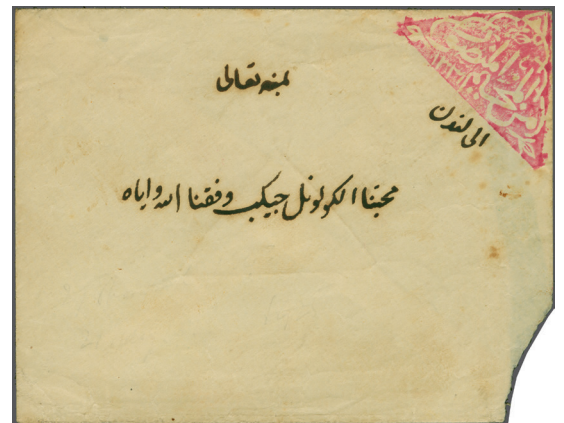 لمنه تعالى
الى لندن
محبنا الكولونل جيكب وفقنا الله واياه